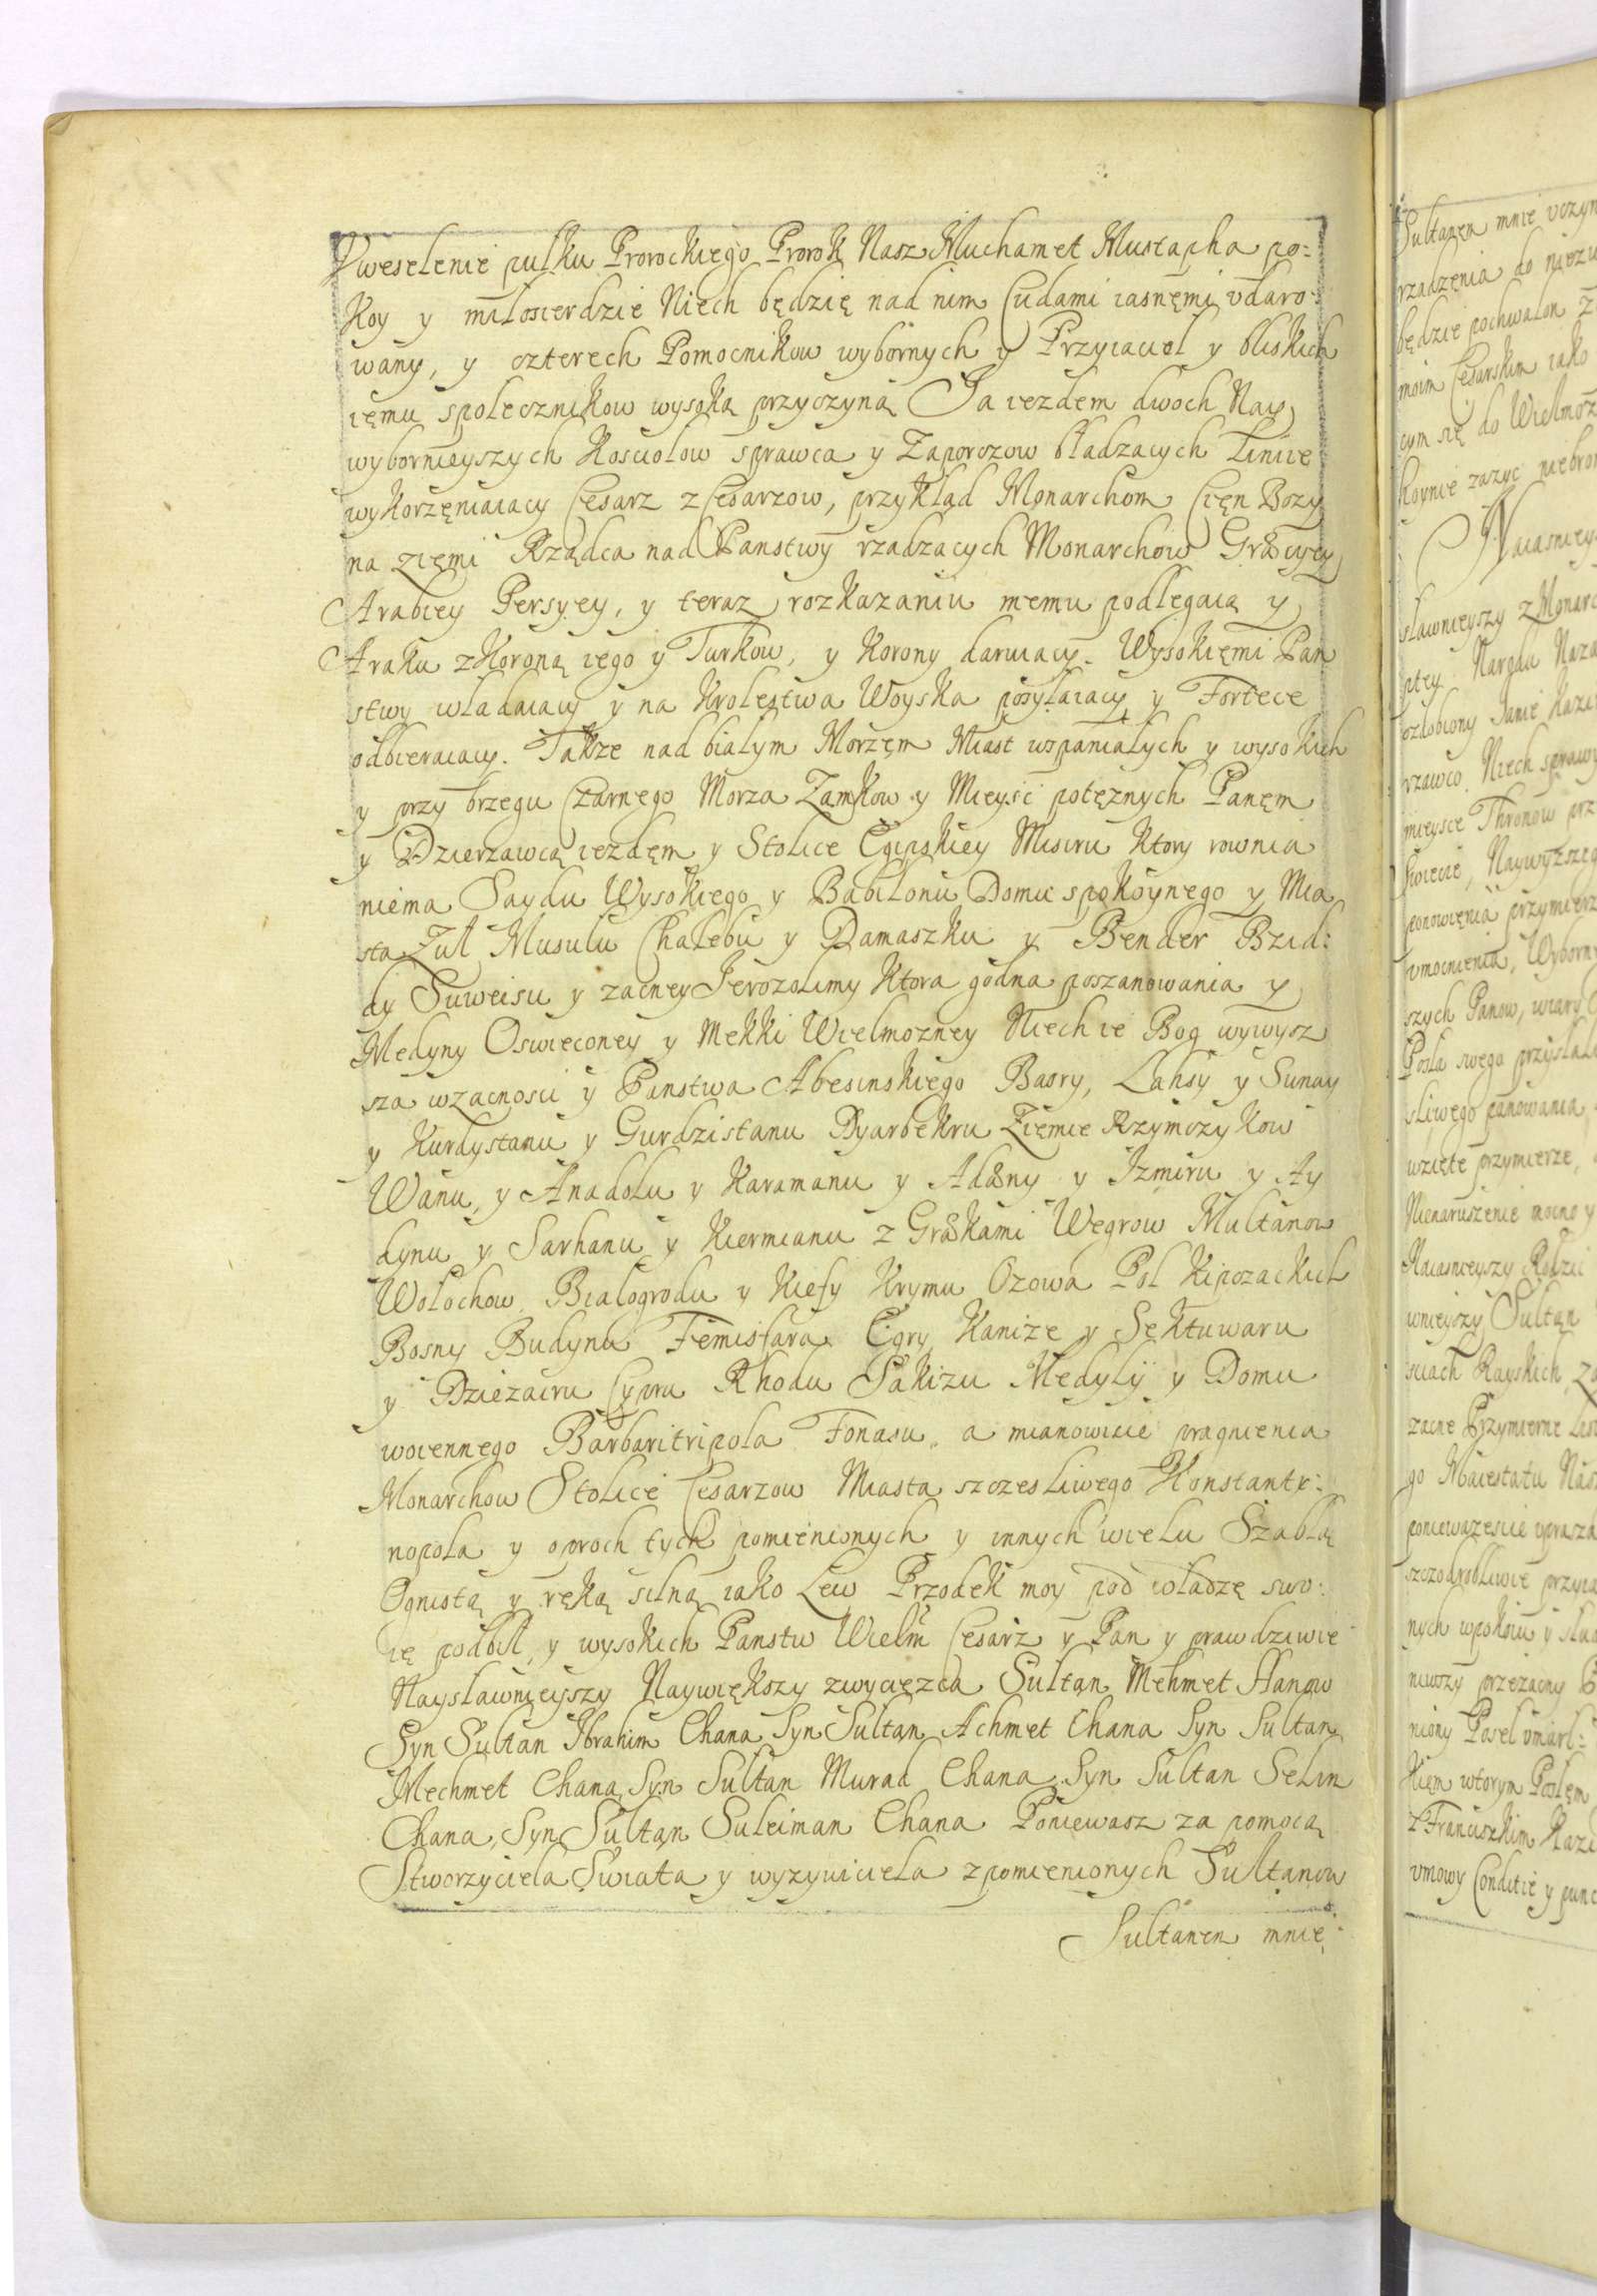 Vweselenie pulku Prorockiego Prorok Nasz Muchamet Mustapha po:
koy y miłosierdzie Niech będzię nad nim Cudami iasnęmi vdaro:
wany, y czterech Pomocnikow wybornych y Przyiaciol y bliskich
ięmu społecznikow wysoką przyczyną Ja iezdem dwoch Nay
wybornieyszych Kosciołow sprawca y Zaporczow bładzacych Linie
wykorzęniaiacy Cesarz z Cesarzow, przykląd Monarchom Cięn Bozy
na zięmi Rządca nad Panstwy rzadzacych Monarchow Græcyey
Arabiey Persyey, y teraz rozkazaniu memu podlegaią y
Araku z Koroną iego y Turkow, y Korony daruiacy. Wysokięmi Pan
stwy władaiacy y na Krolestwa Woyska posyłaiacy y Fortece
odbieraiacy. Takze nad białym Morzęm Miast wspaniałych y wysokich
y przy brzegu Czarnego Morza Zamkow y Mieysc potęznych Panęm
y Dzierzawcą iezdęm y Stolice Egipskiey Misiru ktory rownia
niema Saydu Wysokiego y Babilonu Domu spokoynego y Mia
sta Zul Musulu Chalebu y Damaszku y Bender Bzid:
dy Suweisu y zacney Jerozolimy ktora godna poszanowania y
Medyny Oswieconey y Mekki Wielmozney Niech ie Bog wywysz
sza wzacnosci y Panstwa Abesinskiego Basry, Lahsy y Sunay
y Kurdystanu y Gurdzistanu Dyarbekru Ziemie Rzymczykow
Wanu, y Anadolu y Karamanu y Adany y Izmiru y Ay
dynu y Sarhanu y Kiermianu z Græxkami Wegrow Multanow
Wołochow Białogrodu y Kiefy Krymu Ozowa Pol Kipczackich
Bosny Budynu Temisfara Egry Kanize y Sektuwaru
y Dziezairu Cypru Rhodu Sakizu Medylÿ y Domu
woiennego Barbaritripola Tonasu a mianowicie pragnienia
Monarchow Stolice Cesarzow Miasta szczesliwego Konstanty:
nopola y oproch tych pomienionych y innych wielu Szablą
Ognistą y ręką silną iako Lew Przodek moy pod władzę swo:
ię podbił, y wysokich Panstw Wielm Cesarz y Pan y prawdziwie
Naysławnięyszy Naywiększy zwycięzca Sultan Mehmet Hanow
Syn Sultan Ibrahim Chana Syn Sultan Achmet Chana Syn Sultan
Mechmet Chana Syn Sultan Murad Chana Syn Sultan Selin
Chana, Syn Sultan Suleiman Chana Poniewasz za pomocą
Stworzyciela Swiata y wyzywiciela z pomienionych Sultanow
Sultanem mnię
Sultanem mnie vczyn
rzadzęnia do
będzie pochwalon
moim Cesarskim iako
cym się do Wielmoz
zazyc
Naiasniey
sławnieyszy z Monarc
ozdobiony Janie Kazi
Niech sprawy
mieysce Thronow prz
Naywyzszeg
ponowienia przymierz
vmocnienia, Wyborny
szych Panow, wiary
Posla swego przysłali
sliwego panowania
wzięte przymierze,
Nienaruszenie mocno y
Naiasnieyszy Rodzic
wnieyszy Sultan
sciach Rayskich
zacne Przymierne
go Maiestatu Nas
poniewazescie vprasza
szczodrobliwie przyia
nych wpokoiu y
przezacny
niony Posel vmarl:
wtorym Posłem
Franciszkim Kazi
vmowy Conditie y punc